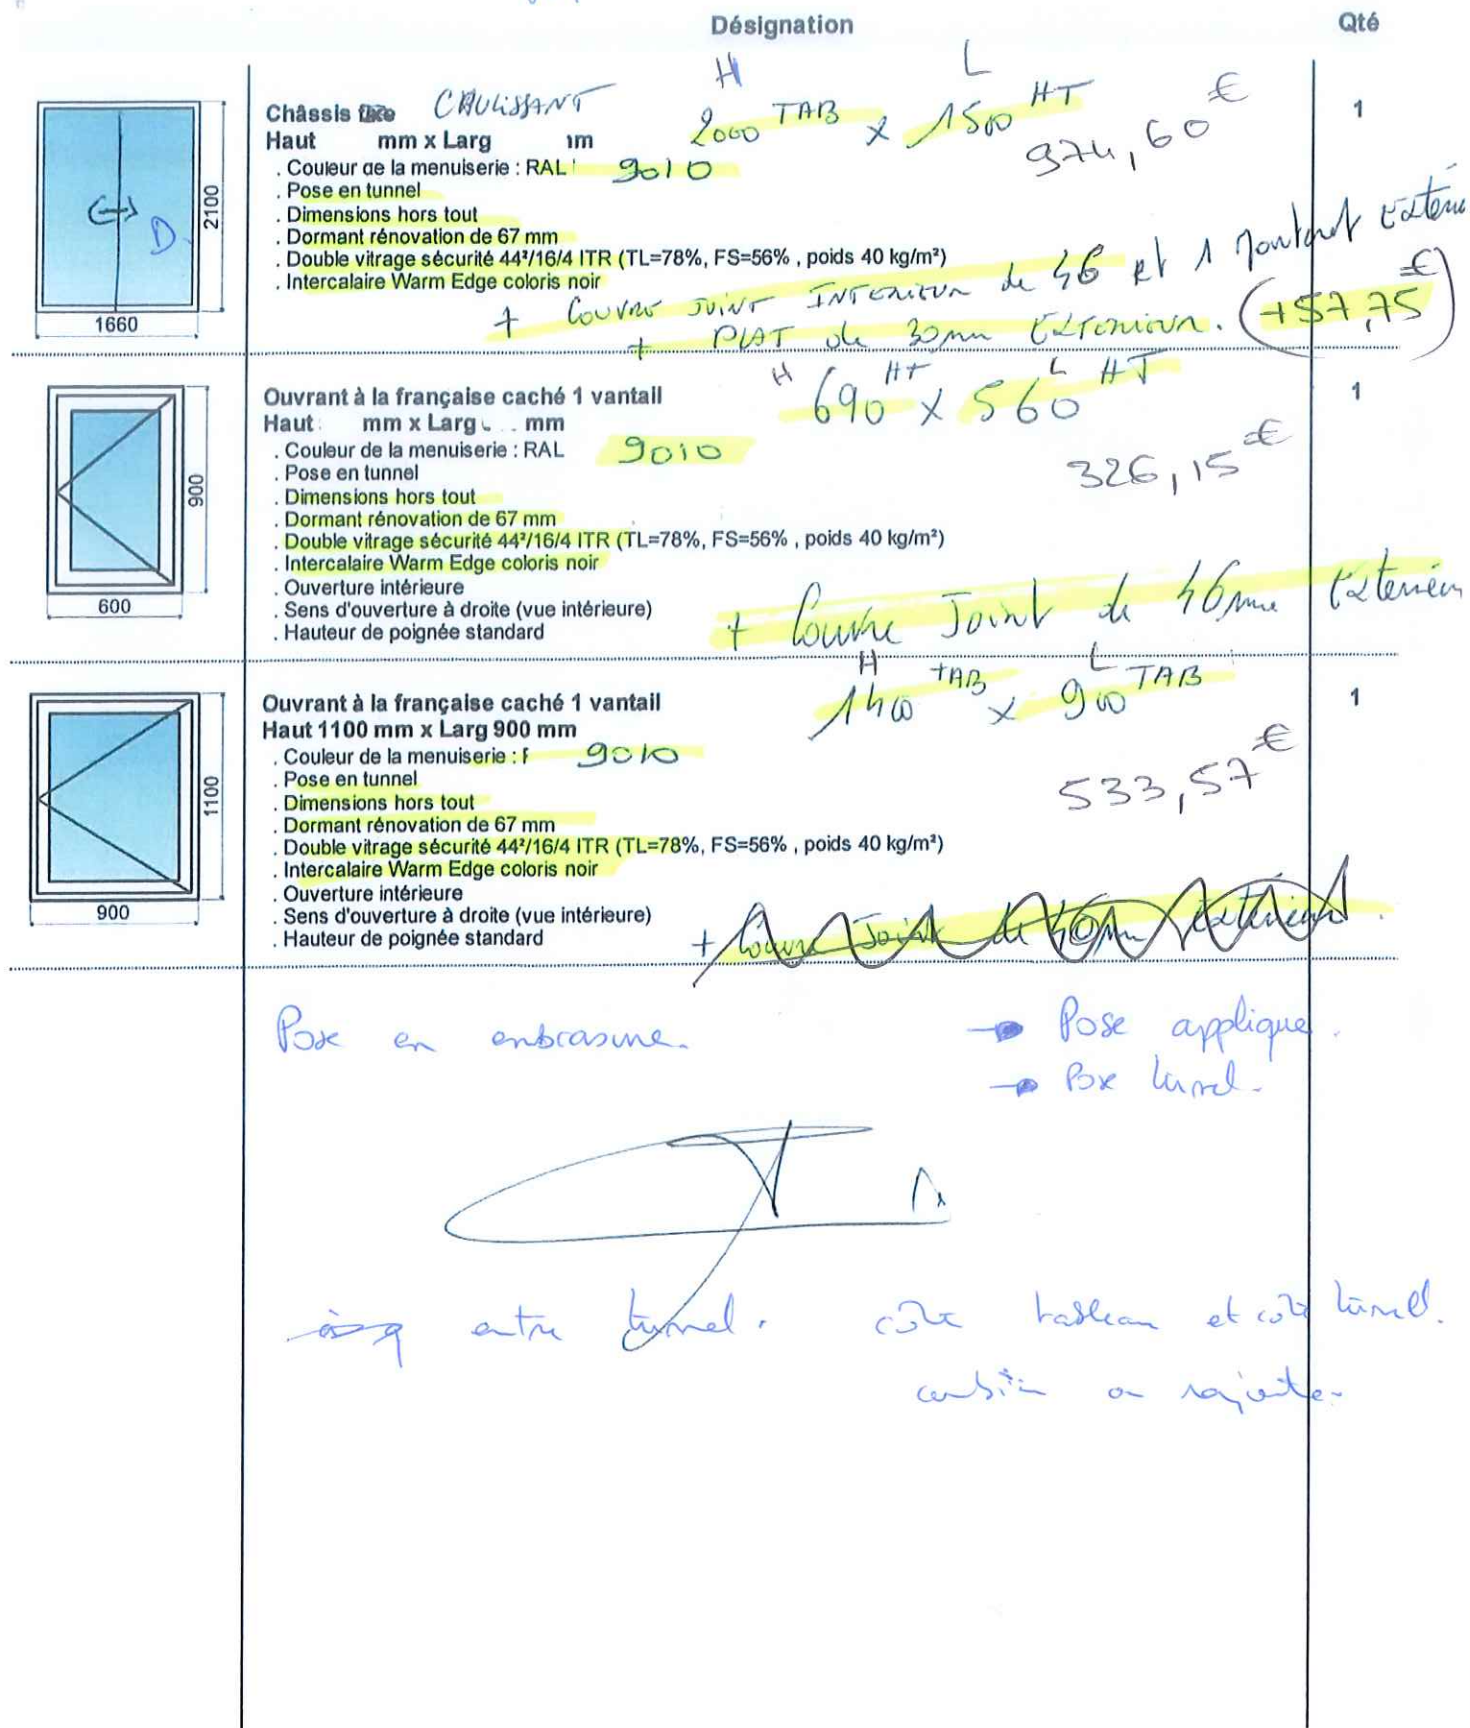 Désignation
Qté
H
L
Châssis fixe COULISSANT
2000 TAB x 1500 HT
974,60 €
1
Haut mm x Larg mm
. Couleur de la menuiserie : RAL 9010
. Pose en tunnel
. Dimensions hors tout
. Dormant rénovation de 67 mm
. Double vitrage sécurité 44²/16/4 ITR (TL=78%, FS=56% , poids 40 kg/m²)
. Intercalaire Warm Edge coloris noir
D
2100
1660
+ COUVRE JOINT INTERIEUR de 46 et 1 montant Exterieu
+ PLAT de 30mm EXTERIEUR. (+57,75 €)
Ouvrant à la française caché 1 vantail
H HT L HT
690 x 560
326,15 €
1
Haut : mm x Larg mm
. Couleur de la menuiserie : RAL 9010
. Pose en tunnel
. Dimensions hors tout
. Dormant rénovation de 67 mm
. Double vitrage sécurité 44²/16/4 ITR (TL=78%, FS=56% , poids 40 kg/m²)
. Intercalaire Warm Edge coloris noir
. Ouverture intérieure
. Sens d'ouverture à droite (vue intérieure)
. Hauteur de poignée standard
900
600
+ Couvre Joint de 46mm Exterieur
Ouvrant à la française caché 1 vantail
H L
1400 TAB x 900 TAB
533,57 €
1
Haut 1100 mm x Larg 900 mm
. Couleur de la menuiserie : 9010
. Pose en tunnel
. Dimensions hors tout
. Dormant rénovation de 67 mm
. Double vitrage sécurité 44²/16/4 ITR (TL=78%, FS=56% , poids 40 kg/m²)
. Intercalaire Warm Edge coloris noir
. Ouverture intérieure
. Sens d'ouverture à droite (vue intérieure)
. Hauteur de poignée standard
1100
900
+ Couvre Joint de exterieur.
Pose en enbrasure.
Pose applique.
Pose tunnel.
entre tunnel. côte tableau et côté tunnel.
combien on rajoute.